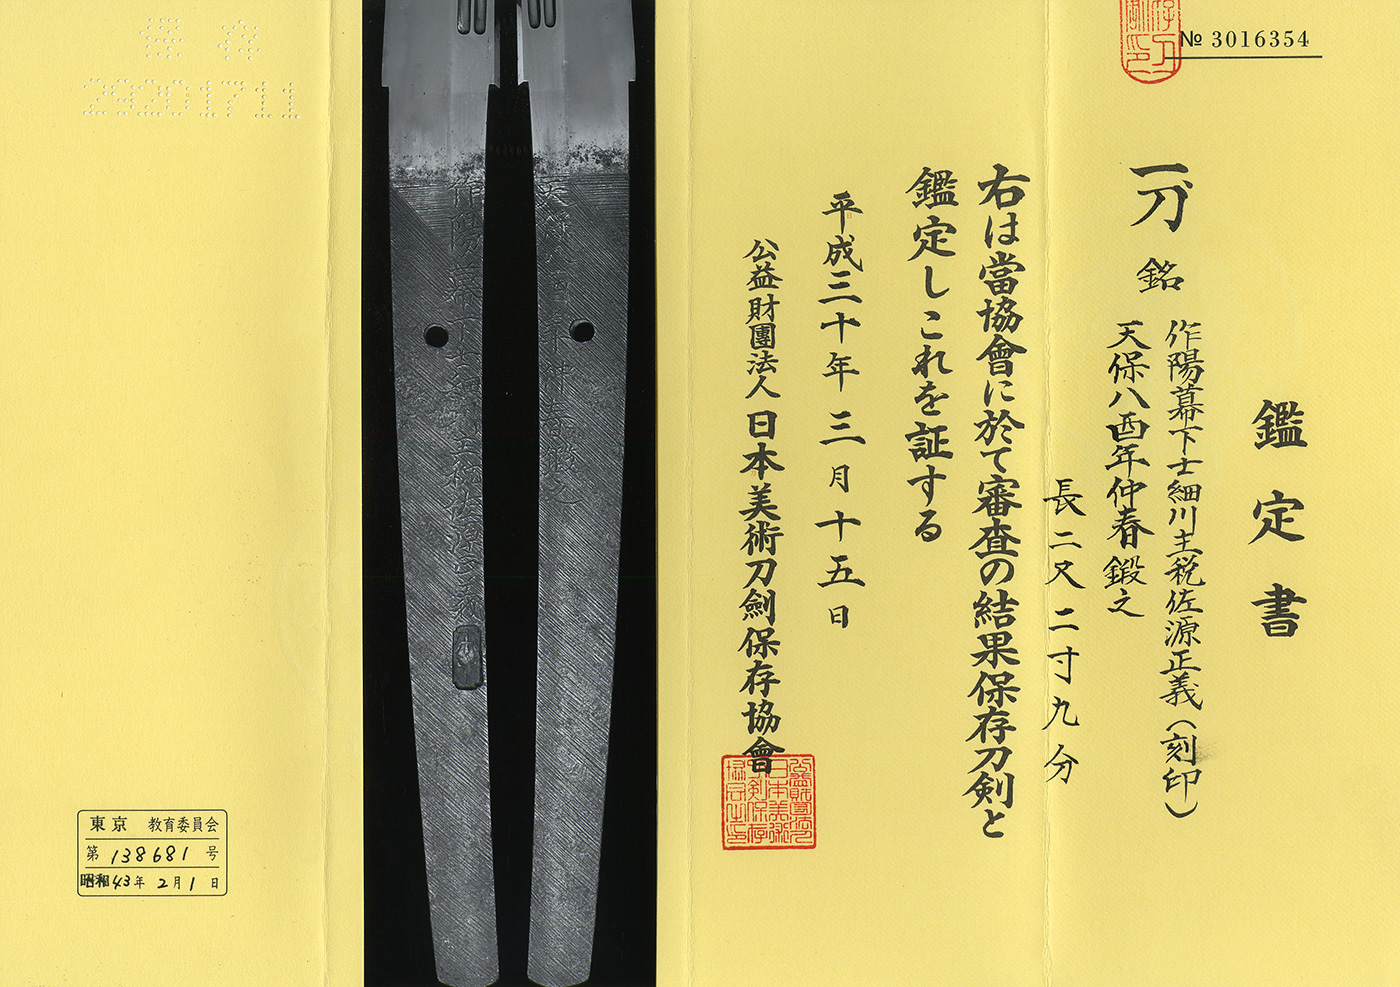 № 3016354
鑑定書
一刀 銘 作陽幕下士細川主税佐源正義(刻印)
天保八酉年仲春鍛之
長二尺二寸九分
右は當協會に於て審査の結果保存刀剣と
鑑定しこれを証する
平成三十年三月十五日
公益財團法人 日本美術刀劍保存協會
作陽幕下士細川主税佐源正義
天保八酉年仲春鍛之
保存
29201711
東京 教育委員会
第 138681 号
昭和43年2月1日